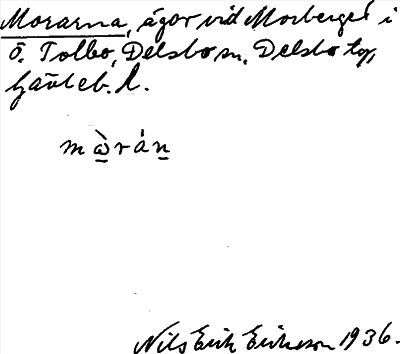 Morarna, ägor vid Morberget i
Ö. Tolbo, Delsbo sn, Delsbo tg,
Gävleb. l.
mὰrάn
Nils Erik Eriksson 1936.